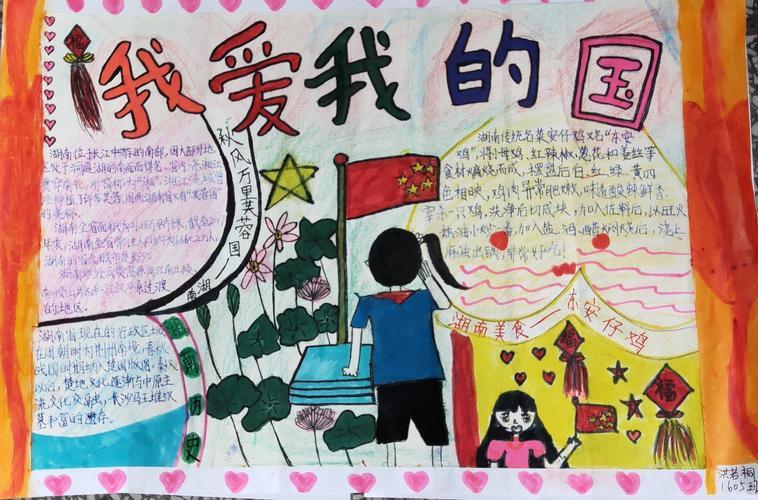 我爱我的国
福
湖南位于长江中游的南部,因大部分地
区处于洞庭湖的南面而得名。省内有湘江
贯穿南北,所以简称为"湘"。湘江流域过去
种植了许多芙蓉,因而湖南省又有"芙蓉国"
的美称。
湖南全省面积为21.18万平方千米,截至2017
年末,湖南全省常住人口约为6860.2万人,
湖南的省会城市是长沙。
湖南地处云贵高原向江南丘陵、
南岭山脉向江汉平原过渡
的地区。
秋风万里芙蓉国
湖南
湖南省现在的行政区域
在周朝时为荆州南境,春秋
战国时期纳入楚国版图,秦汉
以后,楚地文化逐渐与中原主
流文化交融,长沙马王堆汉
墓丰富的遗存。
湖南历史
湖南传统名菜东安仔鸡又名"东安
鸡",将母鸡、红辣椒、葱花和姜丝等
食材焖烧而成,摆盘后白、红、绿、黄四
色相映,鸡肉异常肥嫩,味道酸辣鲜香。
宰杀一只鸡,洗净后切成块,加入佐料后,以旺火
热油小炒一着,加入盐、酒、醋焖烧后,浇上
麻油出锅,非常好吃!
湖南美食——东安仔鸡
福
福
洪若桐
1605班